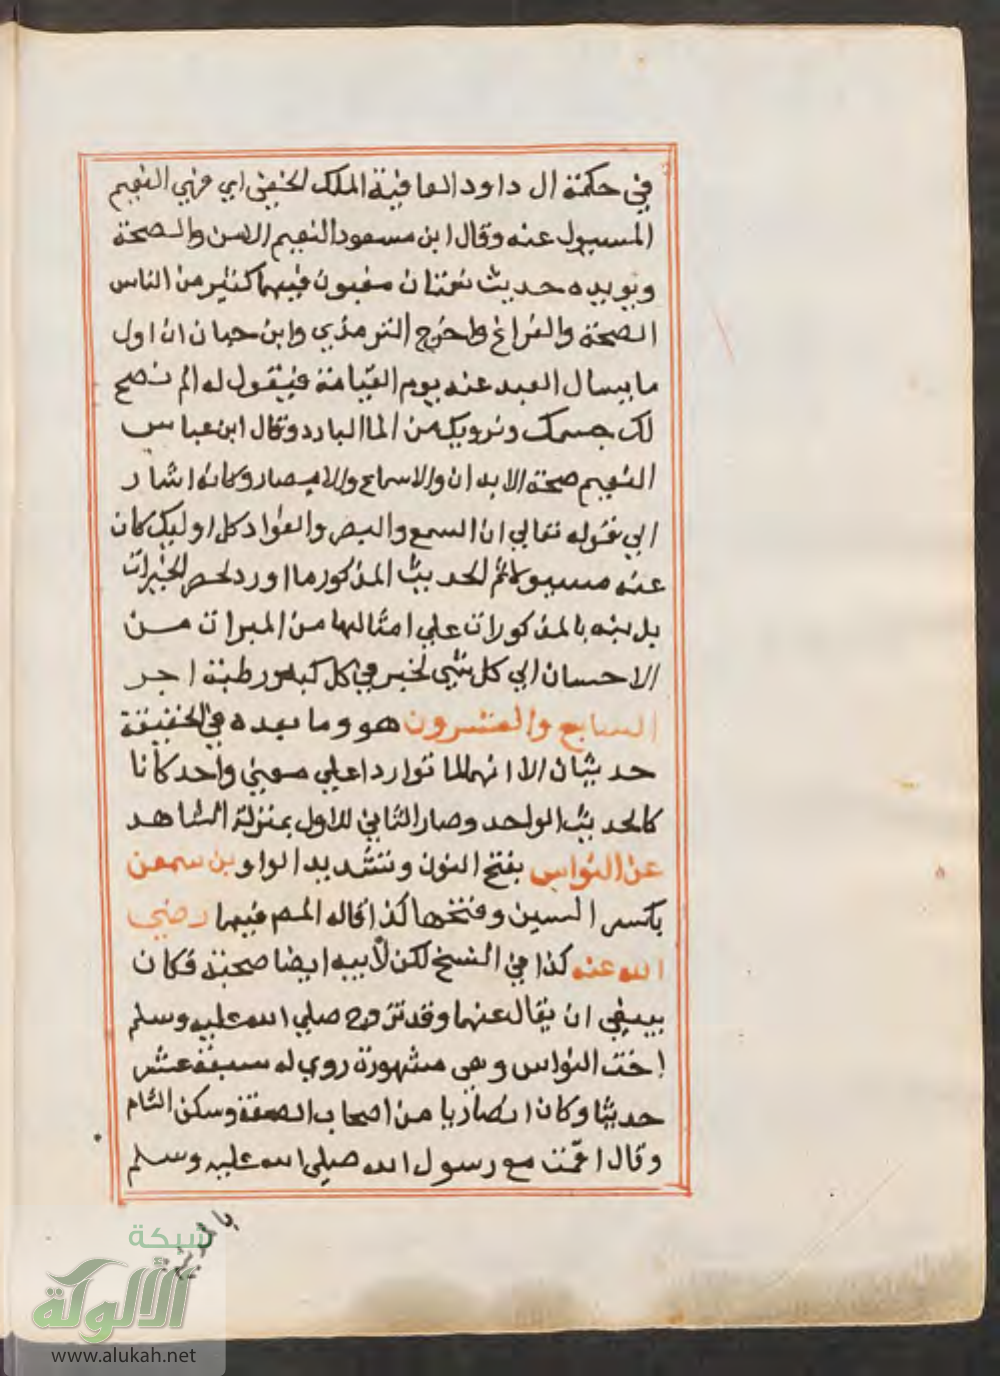 في حكمة ال داود العافية الملك الخفي اي فهي النعيم
المسيول عنه وقال ابن مسعود النعيم الامن والصحة
ويويده حديث نعمتان مغبون فيهما كثير من الناس
الصحة والفراغ واخرج الترمذي وابن حبان ان اول
ما يسال العبد عنه يوم القيامة فيقول له الم نصح
لك جسمك ونرويك من الما البارد وقال ابن عباس
النعيم صحة الابدان والاسماع والابصار وكانه اشار
الي قوله تعالي ان السمع والبصر والفواد كل اوليك كان
عنه مسيولا ثم الحديث المذكور ما اورد لحصر الخيرات
بل نبه بالمذكورات علي امثالها من المبرات من
الاحسان الي كل شي لخبر في كل كبد رطبة اجر
السابع والعشرون هو وما بعده في الحقيقة
حديثان الا انهما لما تواردا علي معني واحد كانا
كالحديث الواحد وصار الثاني للاول بمنزلة الشاهد
عن النواس بفتح النون وتشديد الواو بن سمعن
بكسر السين وفتحها كذا قاله المص فيهما رضي
الله عنه كذا في النسخ لكن لابيه ايضا صحبة فكان
ينبغي ان يقال عنهما وقد تزوج صلي الله عليه وسلم
اخت النواس وهي مشهورة روي له سبعة عشر
حديثا وكان انصاريا من اصحاب الصفة وسكن الشام
وقال اقمت مع رسول الله صلي الله عليه وسلم
بالمدينة
شبكة
الألوكة
www.alukah.net